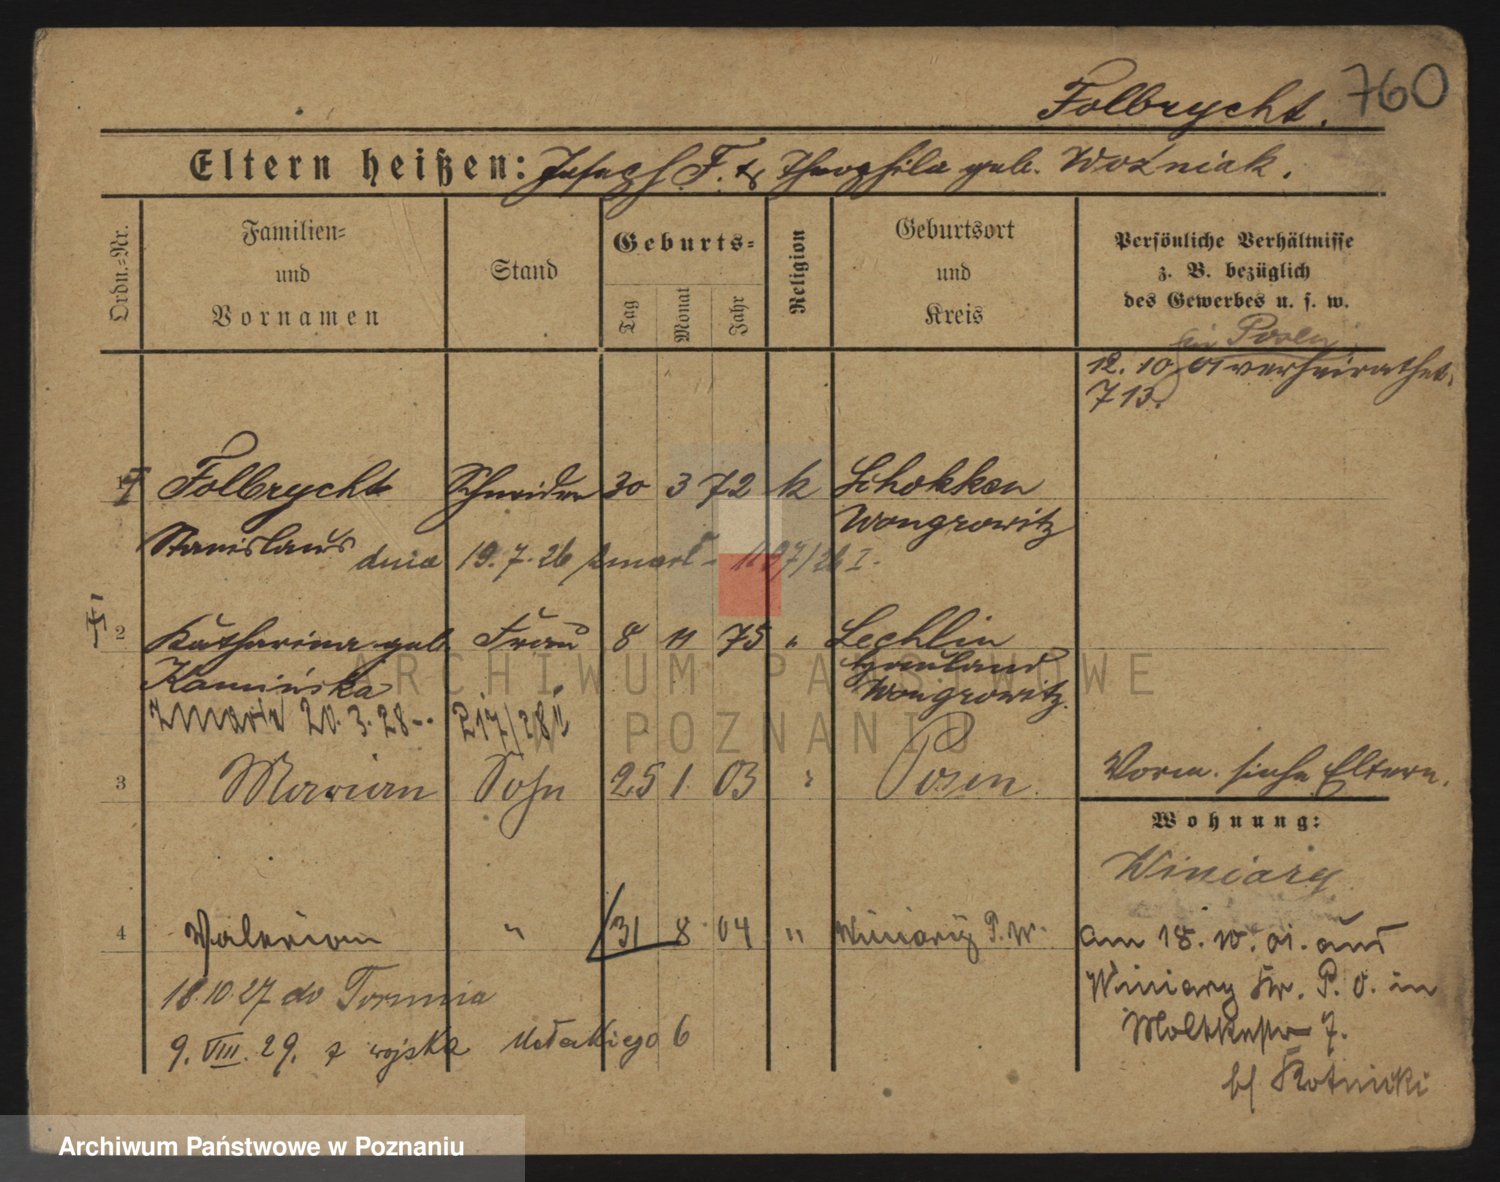 760
Folbrycht.
Eltern heißen: Joseph F. & Theophila geb. Woźniak.
Ordn.-Nr.
Familien- und Vornamen
Stand
Geburts-
Tag
Monat
Jahr
Religion
Geburtsort und Kreis
Persönliche Verhältnisse
z. B. bezüglich
des Gewerbes u. s. w.
in Posen
12. 10. 01 verheirathet.
713.
1 Folbrycht Schneider 30 3 72 k Schokken
Stanislaus Wongrowitz
dnia 19.7.26 zmarł - 1197/26 I.
2 Katharina geb. Frau 8 11 75 " Lechlin
Kamińska Hauland
Wongrowitz.
zmarła 20.3.28 -. 217/28 II
3 Marian Sohn 25 1 03 " Posen
Vorm. siehe Eltern.
Wohnung:
Winiary
4 Valerian " 31 8 04 " Winiary P. W.
am 18. 10. 01. aus
Winiary Kr. P. O. in
Moltkestr 7.
b/ Kotnicki
18.10.27 do Torunia
9. VIII. 29. z wojska Małeckiego 6
ARCHIWUM PAŃSTWOWE
W POZNANIU
Archiwum Państwowe w Poznaniu